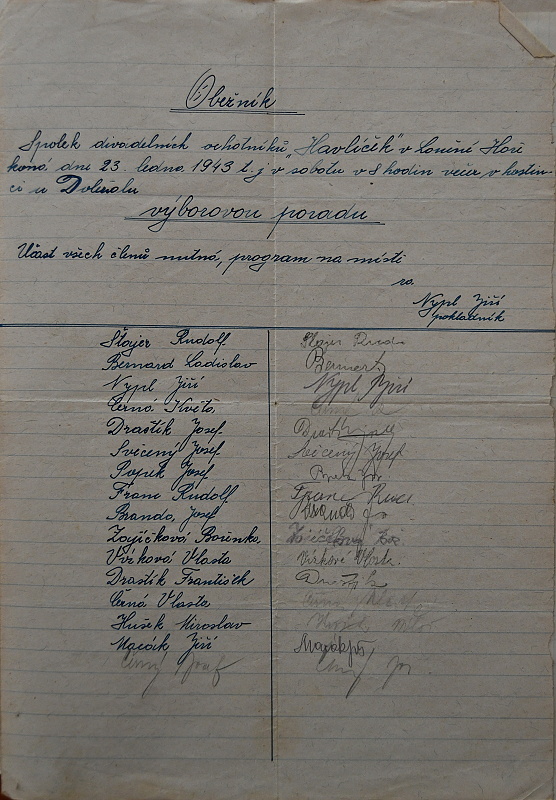 Oběžník
Spolek divadelních ochotníků „Havlíček" v Lomění Hoří
koná dne 23. ledna 1943 t. j. v sobotu v 8 hodin večer v hostin-
ci u Doležalů
výborovou poradu
Účast všech členů nutná, program na místě
Nypl Jiří
pokladník
Štajer Rudolf Štajer Rud.
Bernard Ladislav Bernard
Nypl Jiří Nypl Jiří
Černá Květa
Draštík Josef
Svěcený Josef Svěcený Josef
Popek Josef
Franc Rudolf Franc Rud.
Branda, Josef Branda Jos
Zajíčková Boženka
Vírková Vlasta Vírková Vlasta
Draštík František
Černá Vlasta
Hušek Miroslav
Macák Jiří
Černý Josef Černý Jos.